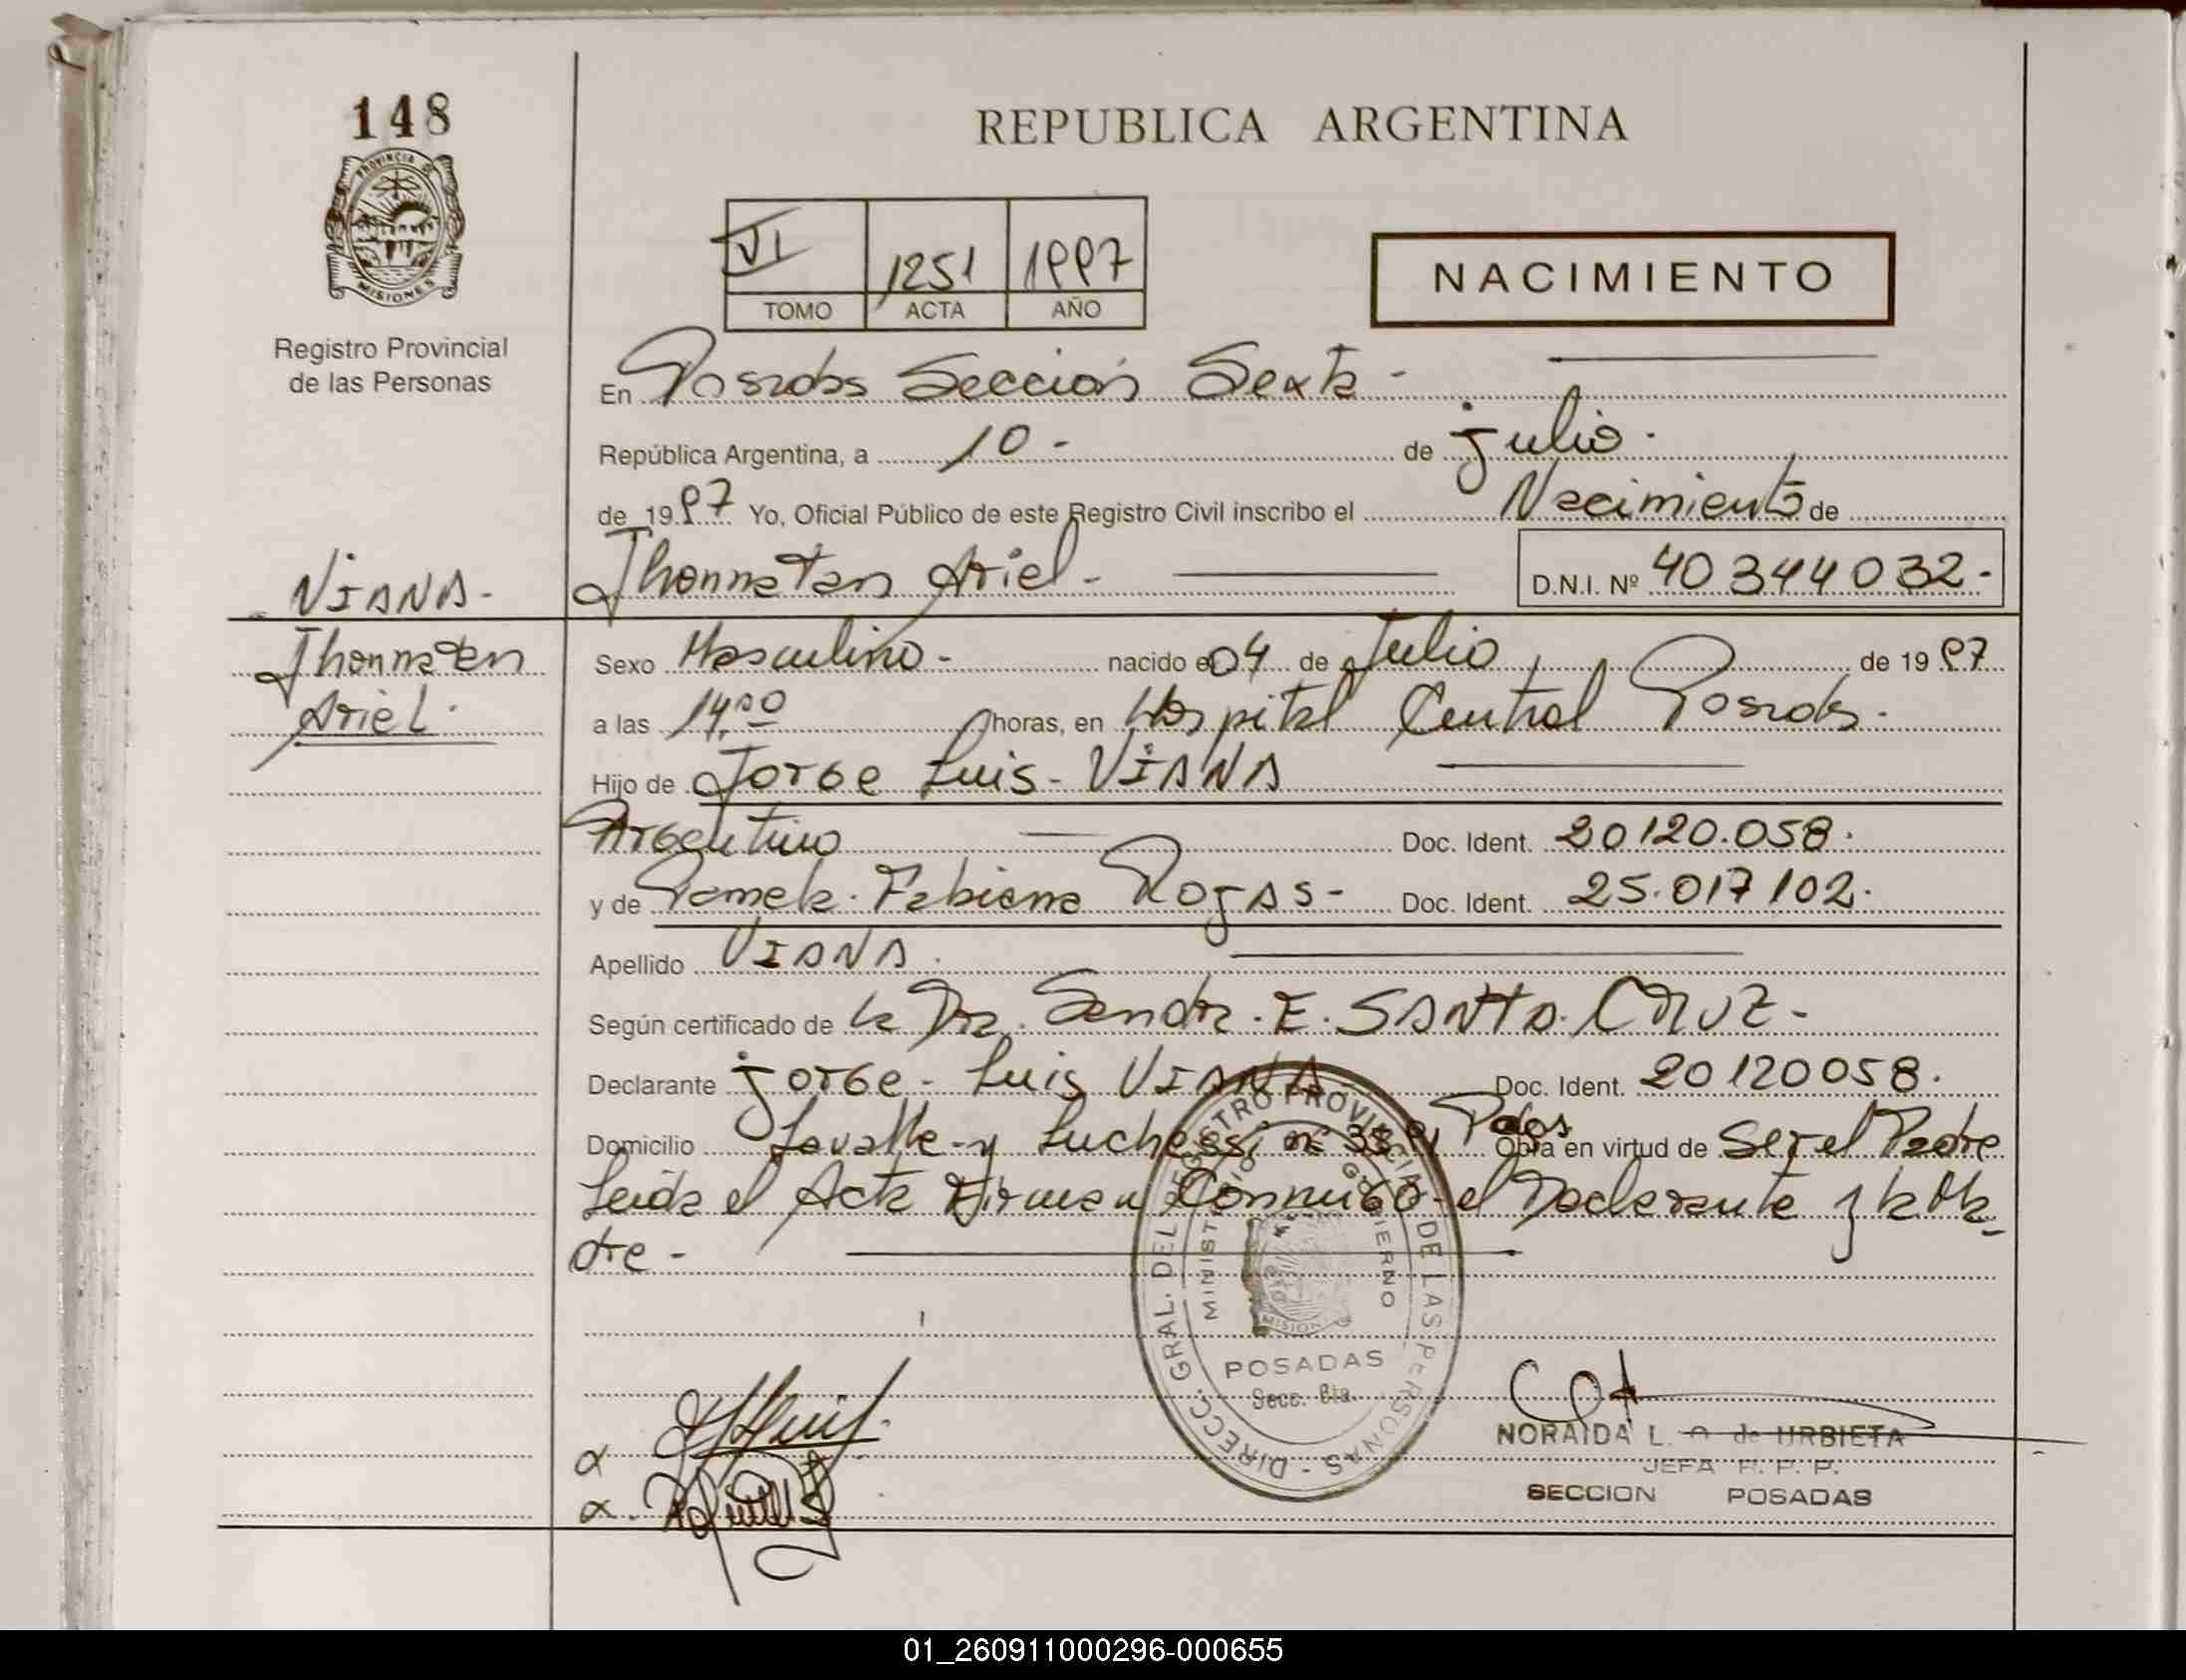 148
REPUBLICA ARGENTINA
PROVINCIA D MISIONES
Registro Provincial
de las Personas
VI 1251 1997
TOMO ACTA AÑO
NACIMIENTO
En Posadas Sección Sexta -
República Argentina, a 10 - de julio -
de 1997 Yo, Oficial Público de este Registro Civil inscribo el Nacimiento de
Jhonnatan Ariel - D.N.I. Nº 40344032.-
VIANA -
Jhonnatan
Ariel.
Sexo Masculino - nacido el 04 de Julio de 1997
a las 14,00 horas, en Hospital Central Posadas.
Hijo de Jorge Luis - VIANA
Argentino Doc. Ident. 20120.058.
y de Pamela. Fabiana Rojas - Doc. Ident. 25.017102.
Apellido VIANA.
Según certificado de la Dra. Sandra. E. SANTA. CRUZ -
Declarante jorge - Luis VIANA Doc. Ident. 20120058.
Domicilio Lavalle - y Luchessi nº Pdas Obra en virtud de Ser el Padre
Leida el Acta Firman Conmigo - el Declarante y la Ma-
dre -
DIRECC. GRAL. DEL REGISTRO PROVINCIAL DE LAS PERSONAS -
MINISTERIO GOBIERNO
MISIONES
POSADAS
Secc. 6ta.
NORAIDA L. de URBIETA
JEFA R. P. P.
SECCION POSADAS
01_260911000296-000655